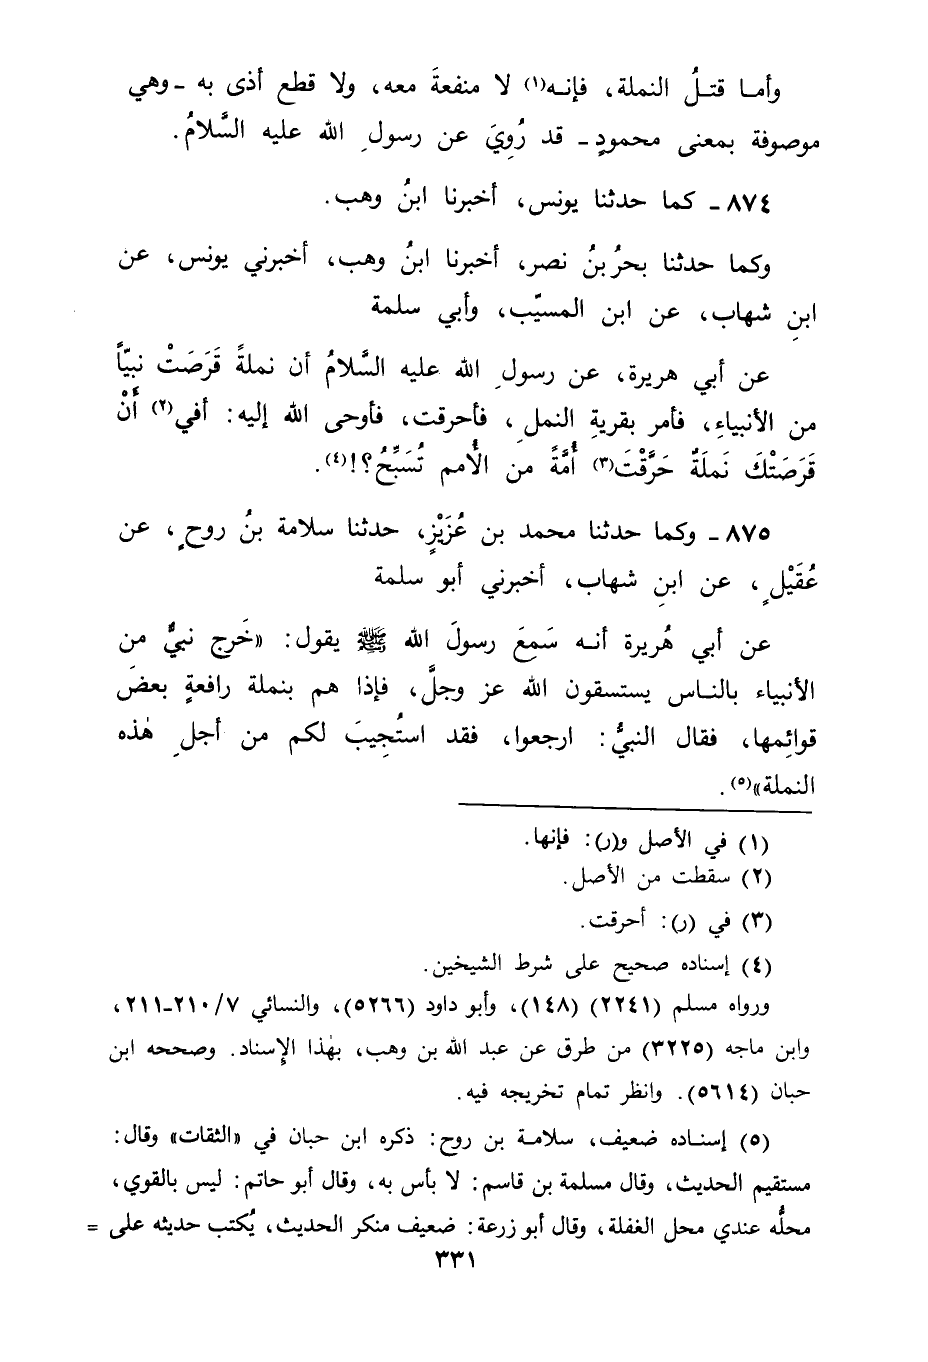 وأمـا قتـلُ النملة، فإنـه(١) لا منفعةَ معه، ولا قطع أذى به ـ وهي
موصوفة بمعنى محمودٍ ـ قد رُوِيَ عن رسولِ الله عليه السَّلامُ.
٨٧٤ ـ كما حدثنا يونس، أخبرنا ابنُ وهب.
وكما حدثنا بحرُ بنُ نصر، أخبرنا ابنُ وهب، أخبرني يونس، عن
ابنِ شهاب، عن ابن المسيّب، وأبي سلمة
عن أبي هريرة، عن رسولِ الله عليه السَّلامُ أن نملةً قَرَصَتْ نبيّاً
من الأنبياءِ، فأمر بقريةِ النملِ، فأحرقت، فأوحى الله إليه: أفي(٢) أَنْ
قَرَصَتْكَ نَملَةٌ حَرَّقْتَ(٣) أُمَّةً من الأُمم تُسَبِّحُ؟!(٤).
٨٧٥ ـ وكما حدثنا محمد بن عُزَيْزٍ، حدثنا سلامة بنُ روحٍ، عن
عُقَيْلٍ، عن ابنِ شهاب، أخبرني أبو سلمة
عن أبي هُريرة أنـه سَمِعَ رسولَ الله ﷺ يقول: «خَرج نبيٌّ من
الأنبياء بالنـاس يستسقون الله عز وجلَّ، فإذا هم بنملة رافعةٍ بعضَ
قوائِمها، فقال النبيُّ: ارجعوا، فقد استُجِيبَ لكم من أجلِ هٰذه
النملة»(٥).
(١) في الأصل و(ر): فإنها.
(٢) سقطت من الأصل.
(٣) في (ر): أحرقت.
(٤) إسناده صحيح على شرط الشيخين.
ورواه مسلم (٢٢٤١) (١٤٨)، وأبو داود (٥٢٦٦)، والنسائي ٢١٠/٧-٢١١،
وابن ماجه (٣٢٢٥) من طرق عن عبد الله بن وهب، بهٰذا الإسناد. وصححه ابن
حبان (٥٦١٤). وانظر تمام تخريجه فيه.
(٥) إسنـاده ضعيف، سلامـة بن روح: ذكره ابن حبان في «الثقات» وقال:
مستقيم الحديث، وقال مسلمة بن قاسم: لا بأس به، وقال أبو حاتم: ليس بالقوي،
محلُّه عندي محل الغفلة، وقال أبو زرعة: ضعيف منكر الحديث، يُكتب حديثه على =
٣٣١